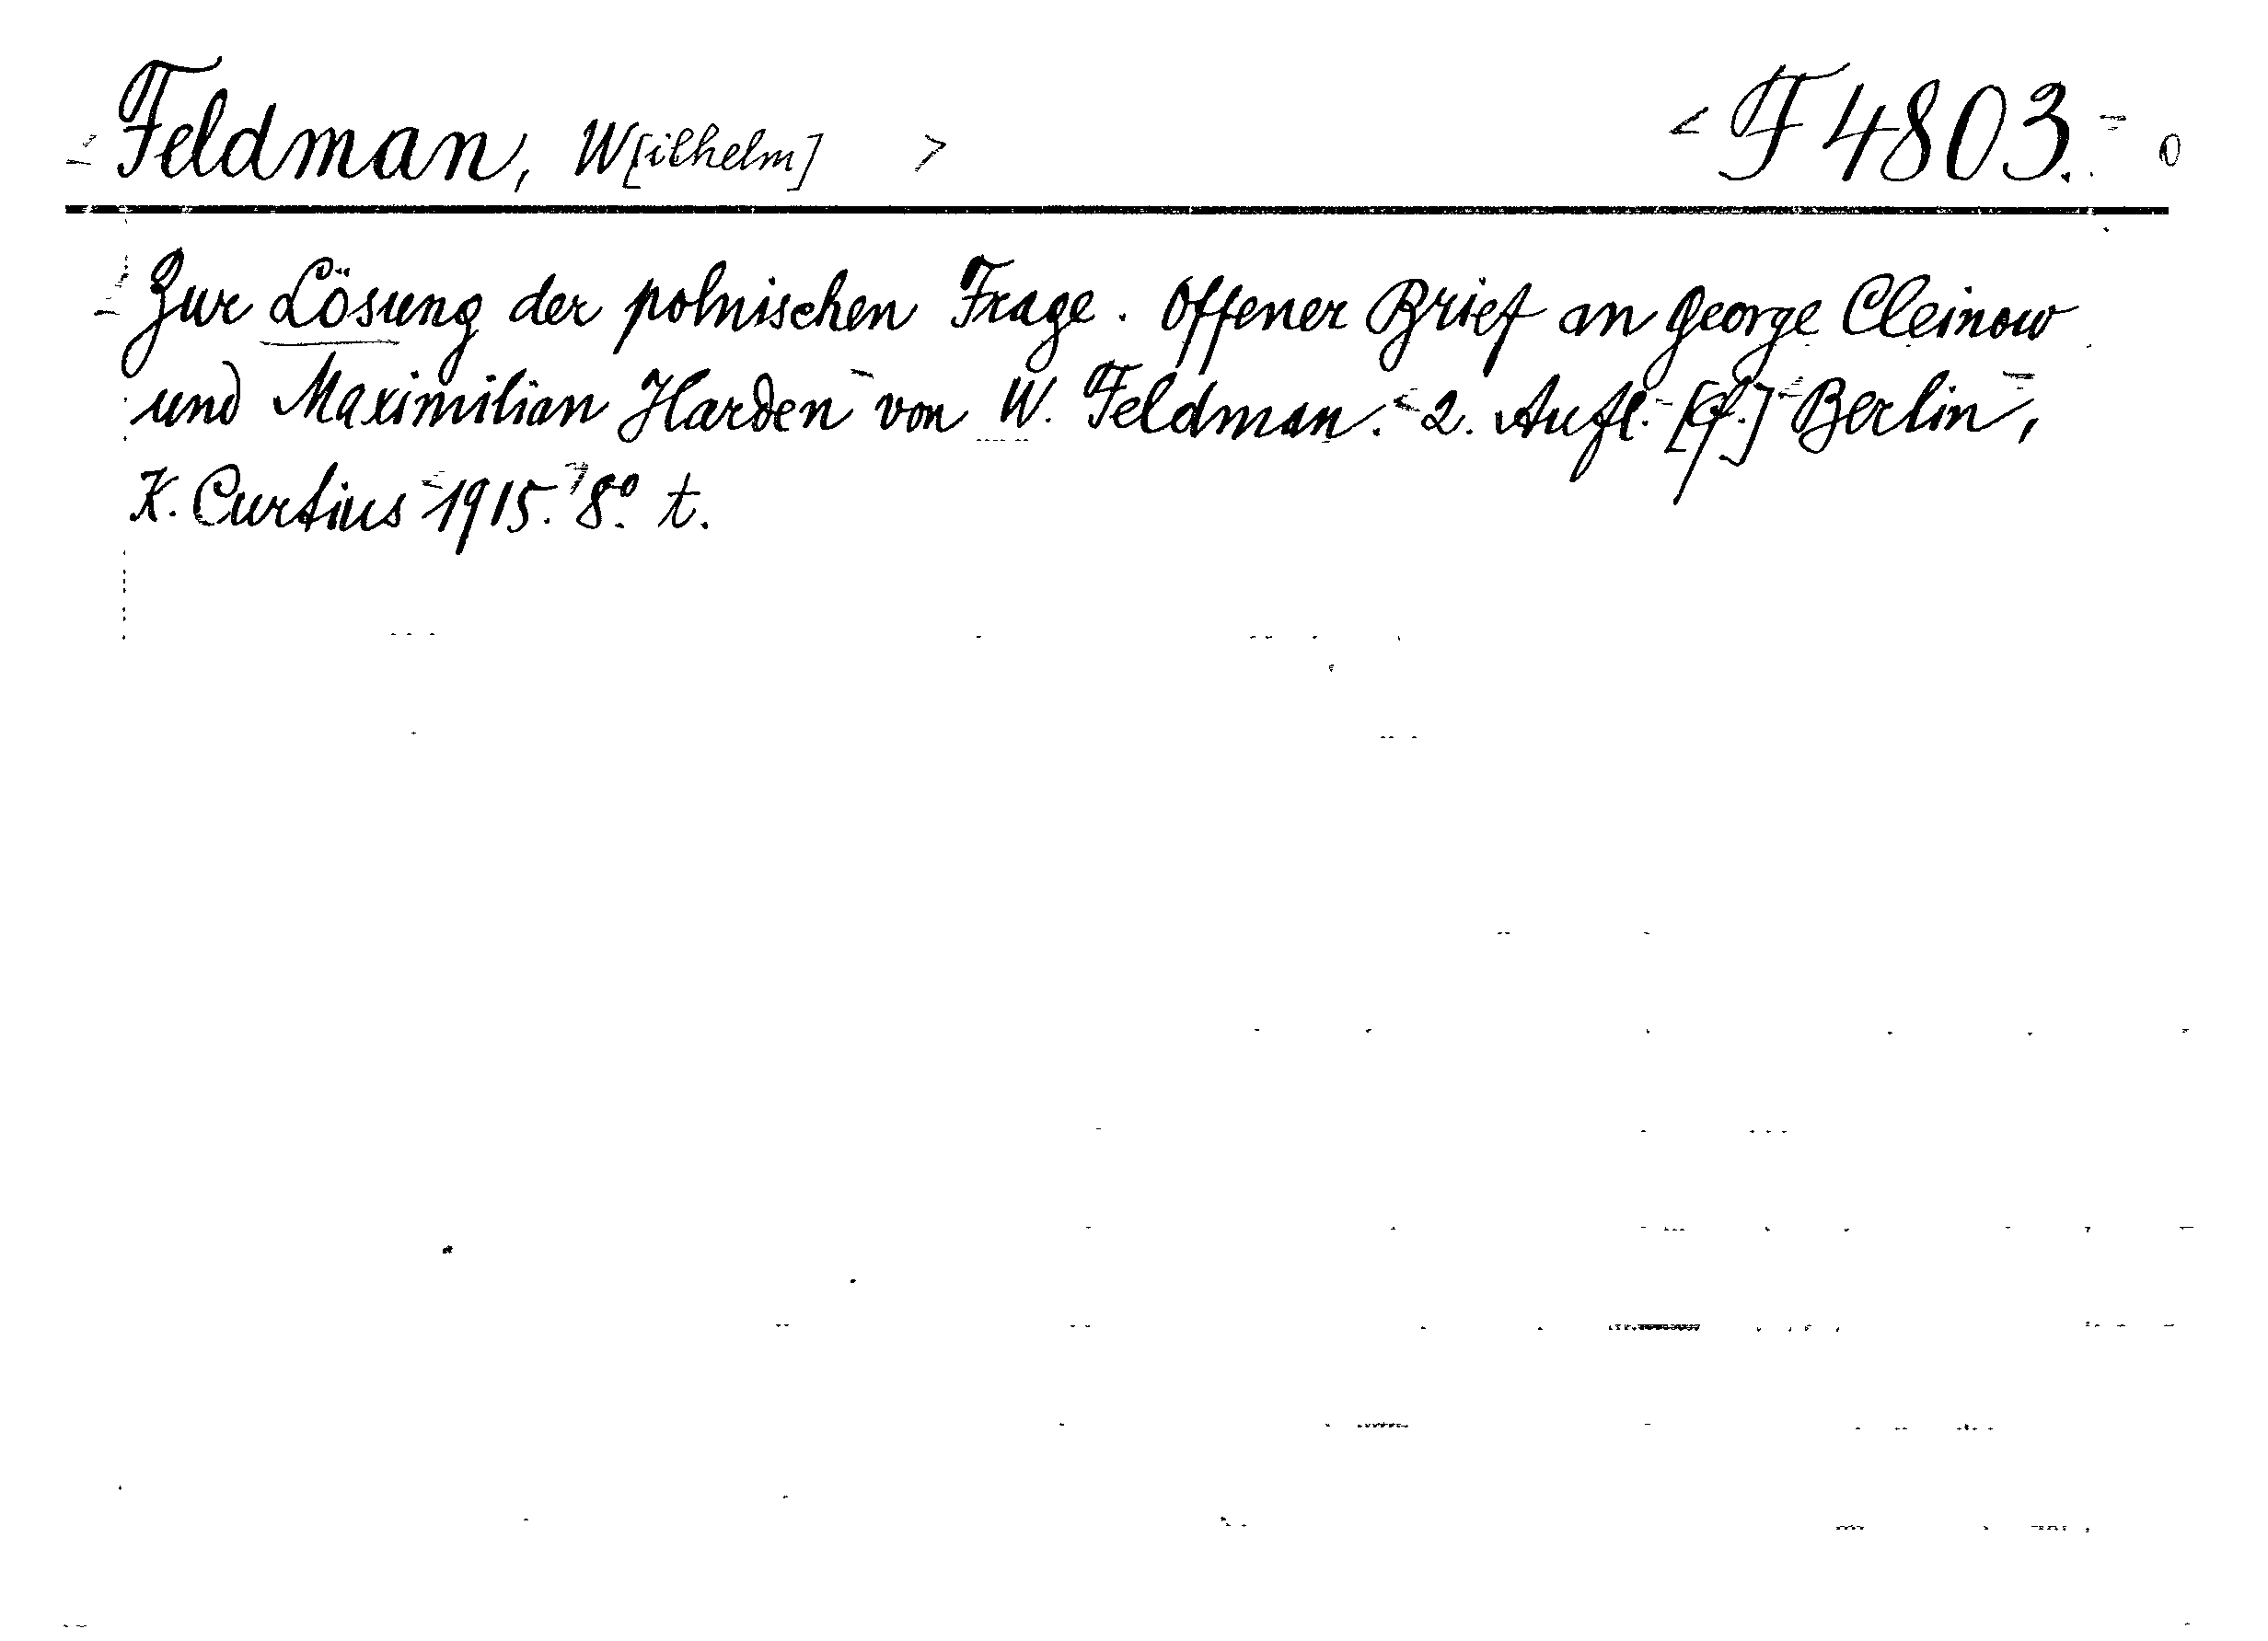 Feldman, W[ilhelm] > < F 4803. 0
Zur Lösung der polnischen Frage. Offener Brief an George Cleinow
und Maximilian Harden von W. Feldman. 2. Aufl. Berlin,
K. Curtius 1915. 8° t.